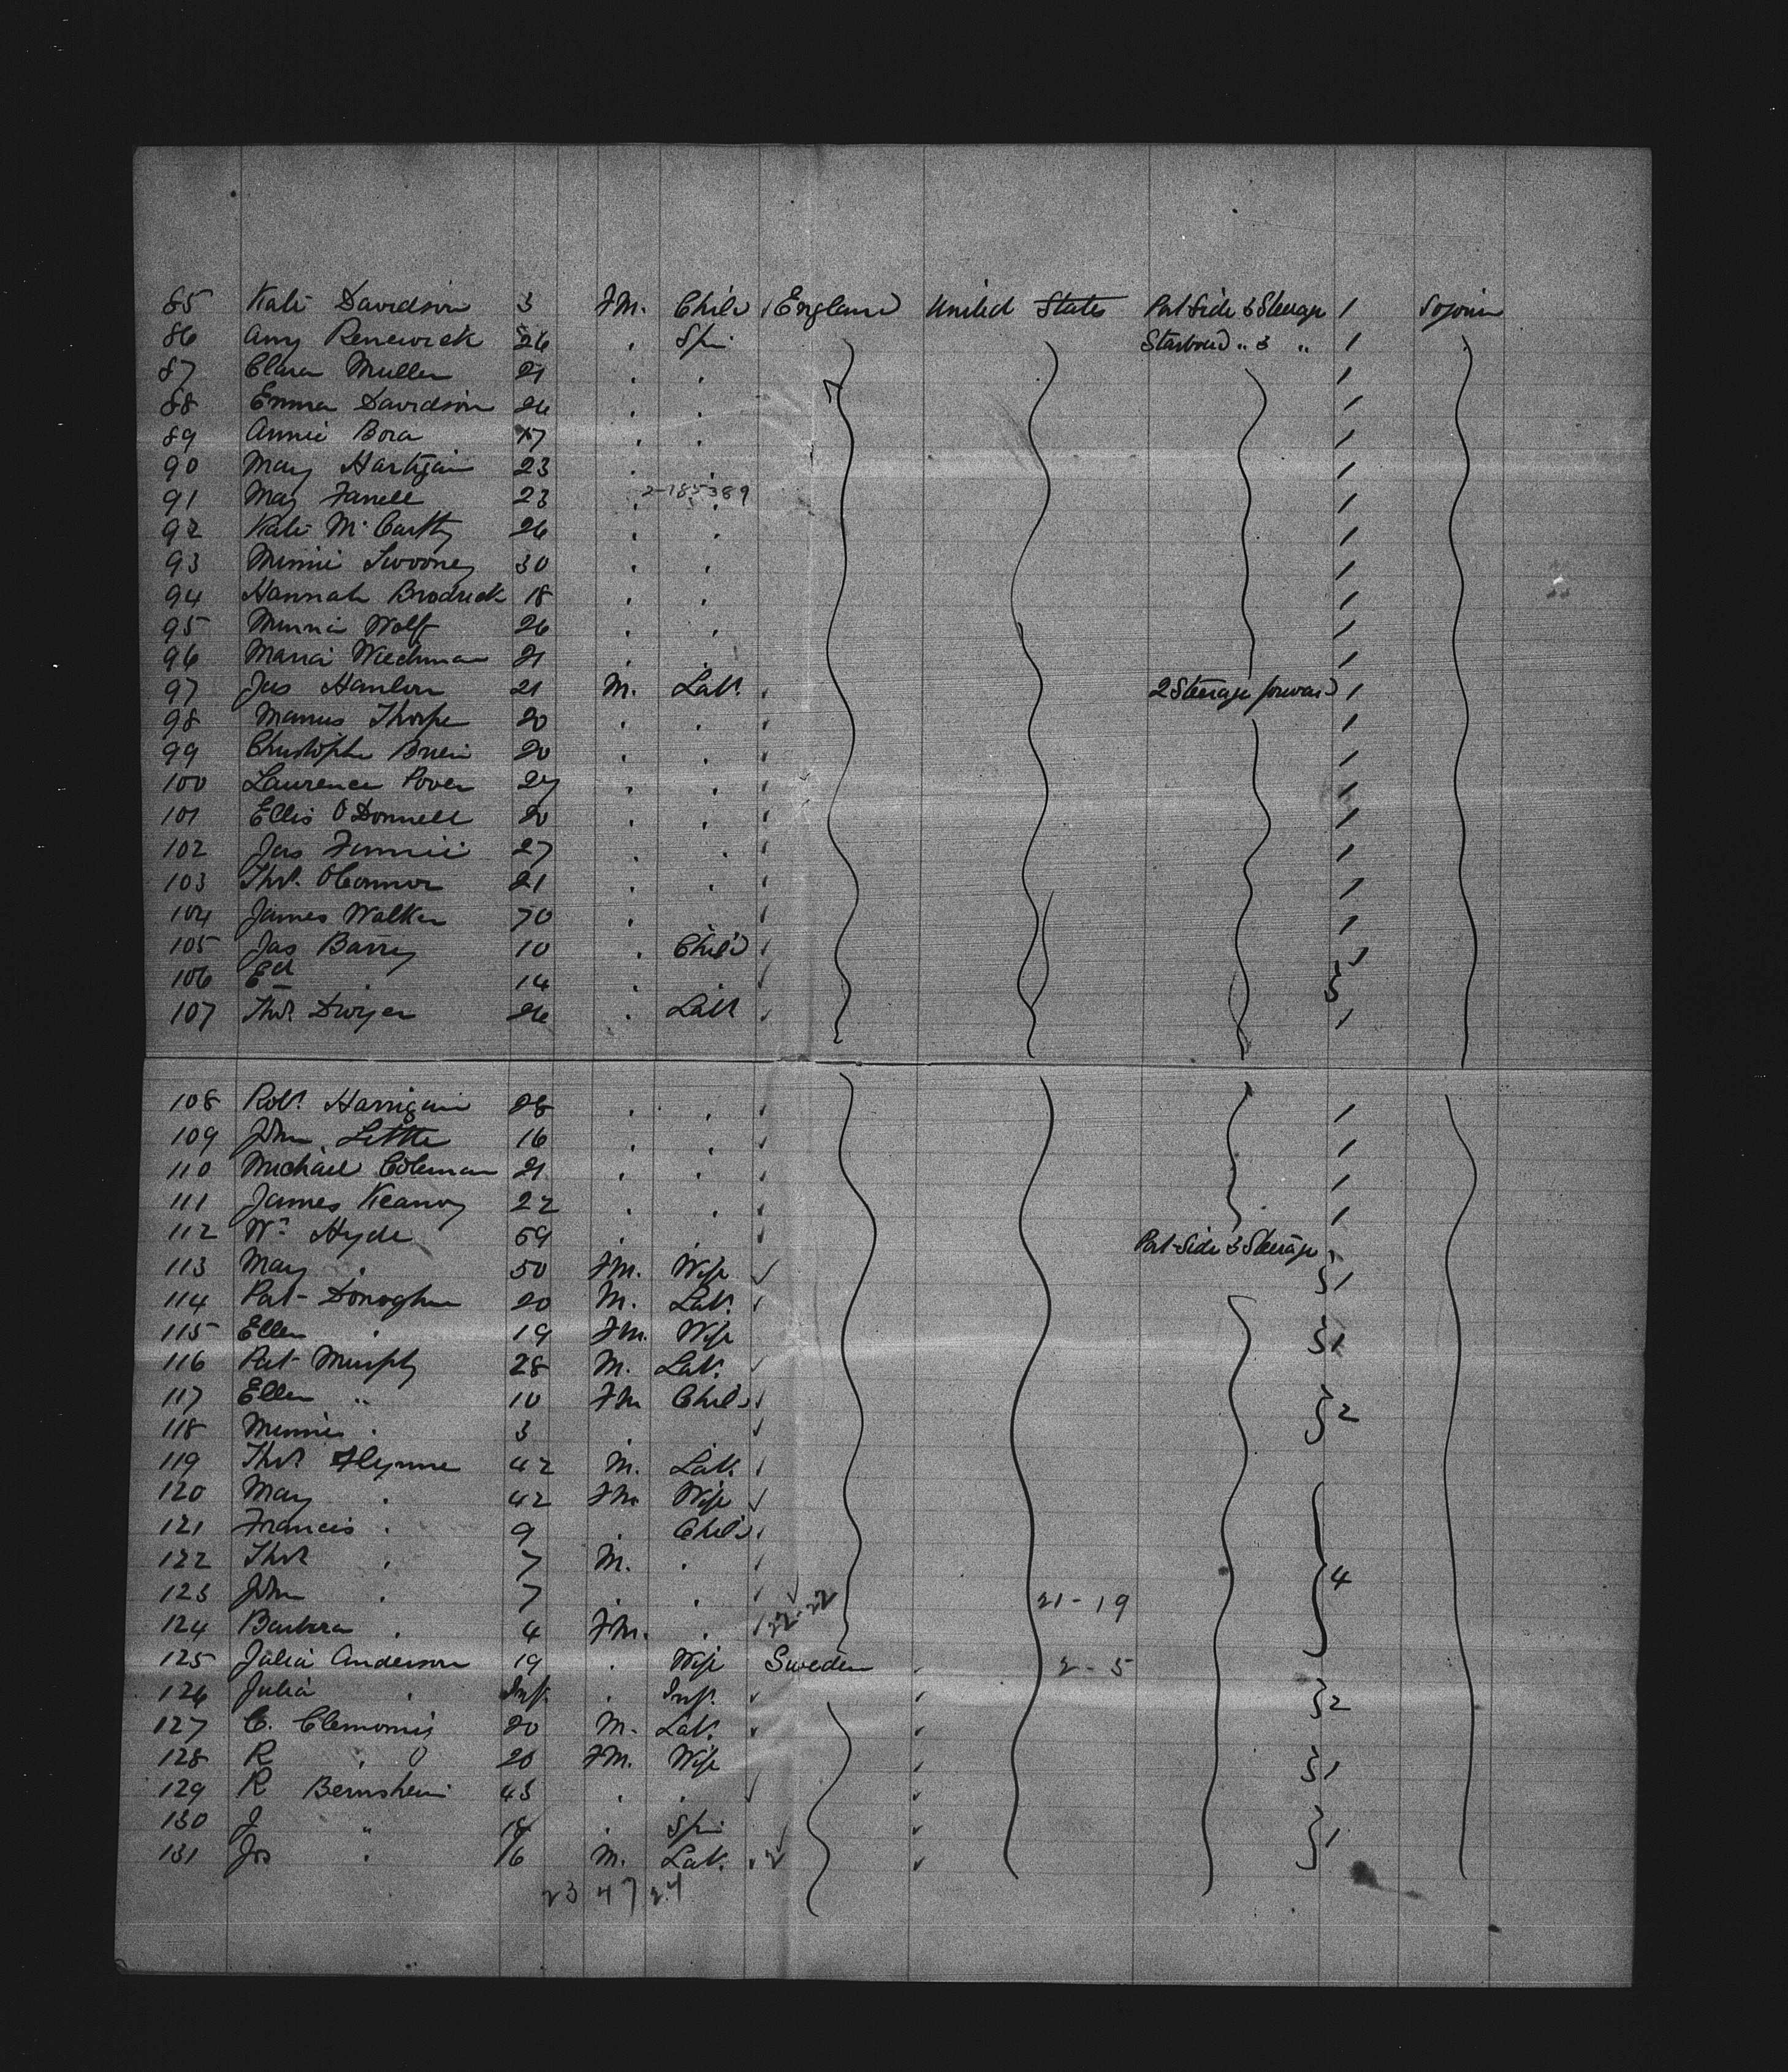 85 Kate Davidson 3 FM. Child England United States Port Side 3 Steerage 1 Sojourn
86 Amy Renewick 26 . Spr. Starboard " 3 " 1
87 Clara Muller 21 . . 1
88 Emma Davidson 26 . . 1
89 Annie Bora 17 . . 1
90 Mary Hartigan 23 . . 1
2-185389
91 May Farrell 23 . . 1
92 Kate McCarthy 26 . . 1
93 Minnie Swooney 30 . . 1
94 Hannah Brodrick 18 . . 1
95 Minnie Wolff 26 . . 1
96 Maria Wiechman 21 . . 1
97 Jas Hanlon 21 M. Lab. 2 Steerage forward 1
98 Manus Thorpe 20 . . 1
99 Christopher Brien 20 . . 1
100 Laurence Power 27 . . 1
101 Ellis O'Donnell 20 . . 1
102 Jas 27 . . 1
103 Thos. O'Connor 21 . . 1
104 James Walker 70 . . 1
105 Jas Barry 10 . Child 1
106 Ed — 14 . .
107 Thos. Dwyer 26 . Lab. 1
108 Robt. Harrigan 28 . . 1
109 John Little 16 . . 1
110 Michael Coleman 21 . . 1
111 James Keanoy 22 . . 1
112 Wm Hyde 59 . . Port Side 3 Steerage
113 Mary . 50 FM. Wife 1
114 Pat Donoghue 20 M. Lab.
115 Ellen . 19 FM. Wife 1
116 Pat Murphy 28 M. Lab.
117 Ellen " 10 FM Child 2
118 Minnie . 3 .
119 Thos. Flynne 42 M. Lab.
120 Mary . 42 FM. Wife
121 Francis . 9 . Child
122 Thos . 7 M. . 4
123 John . 7 . . 22-22 21-19
124 Barbara . 4 FM. .
125 Julia Anderson 19 . Wife Sweden 2-5
126 Julia . Inf. . Inf. 2
127 C. 20 M. Lab.
128 R . 20 FM. Wife 1
129 R Bernshein 43 . .
130 J " 18 . Spr. 1
131 Jos . 16 M. Lab.
23 47 24